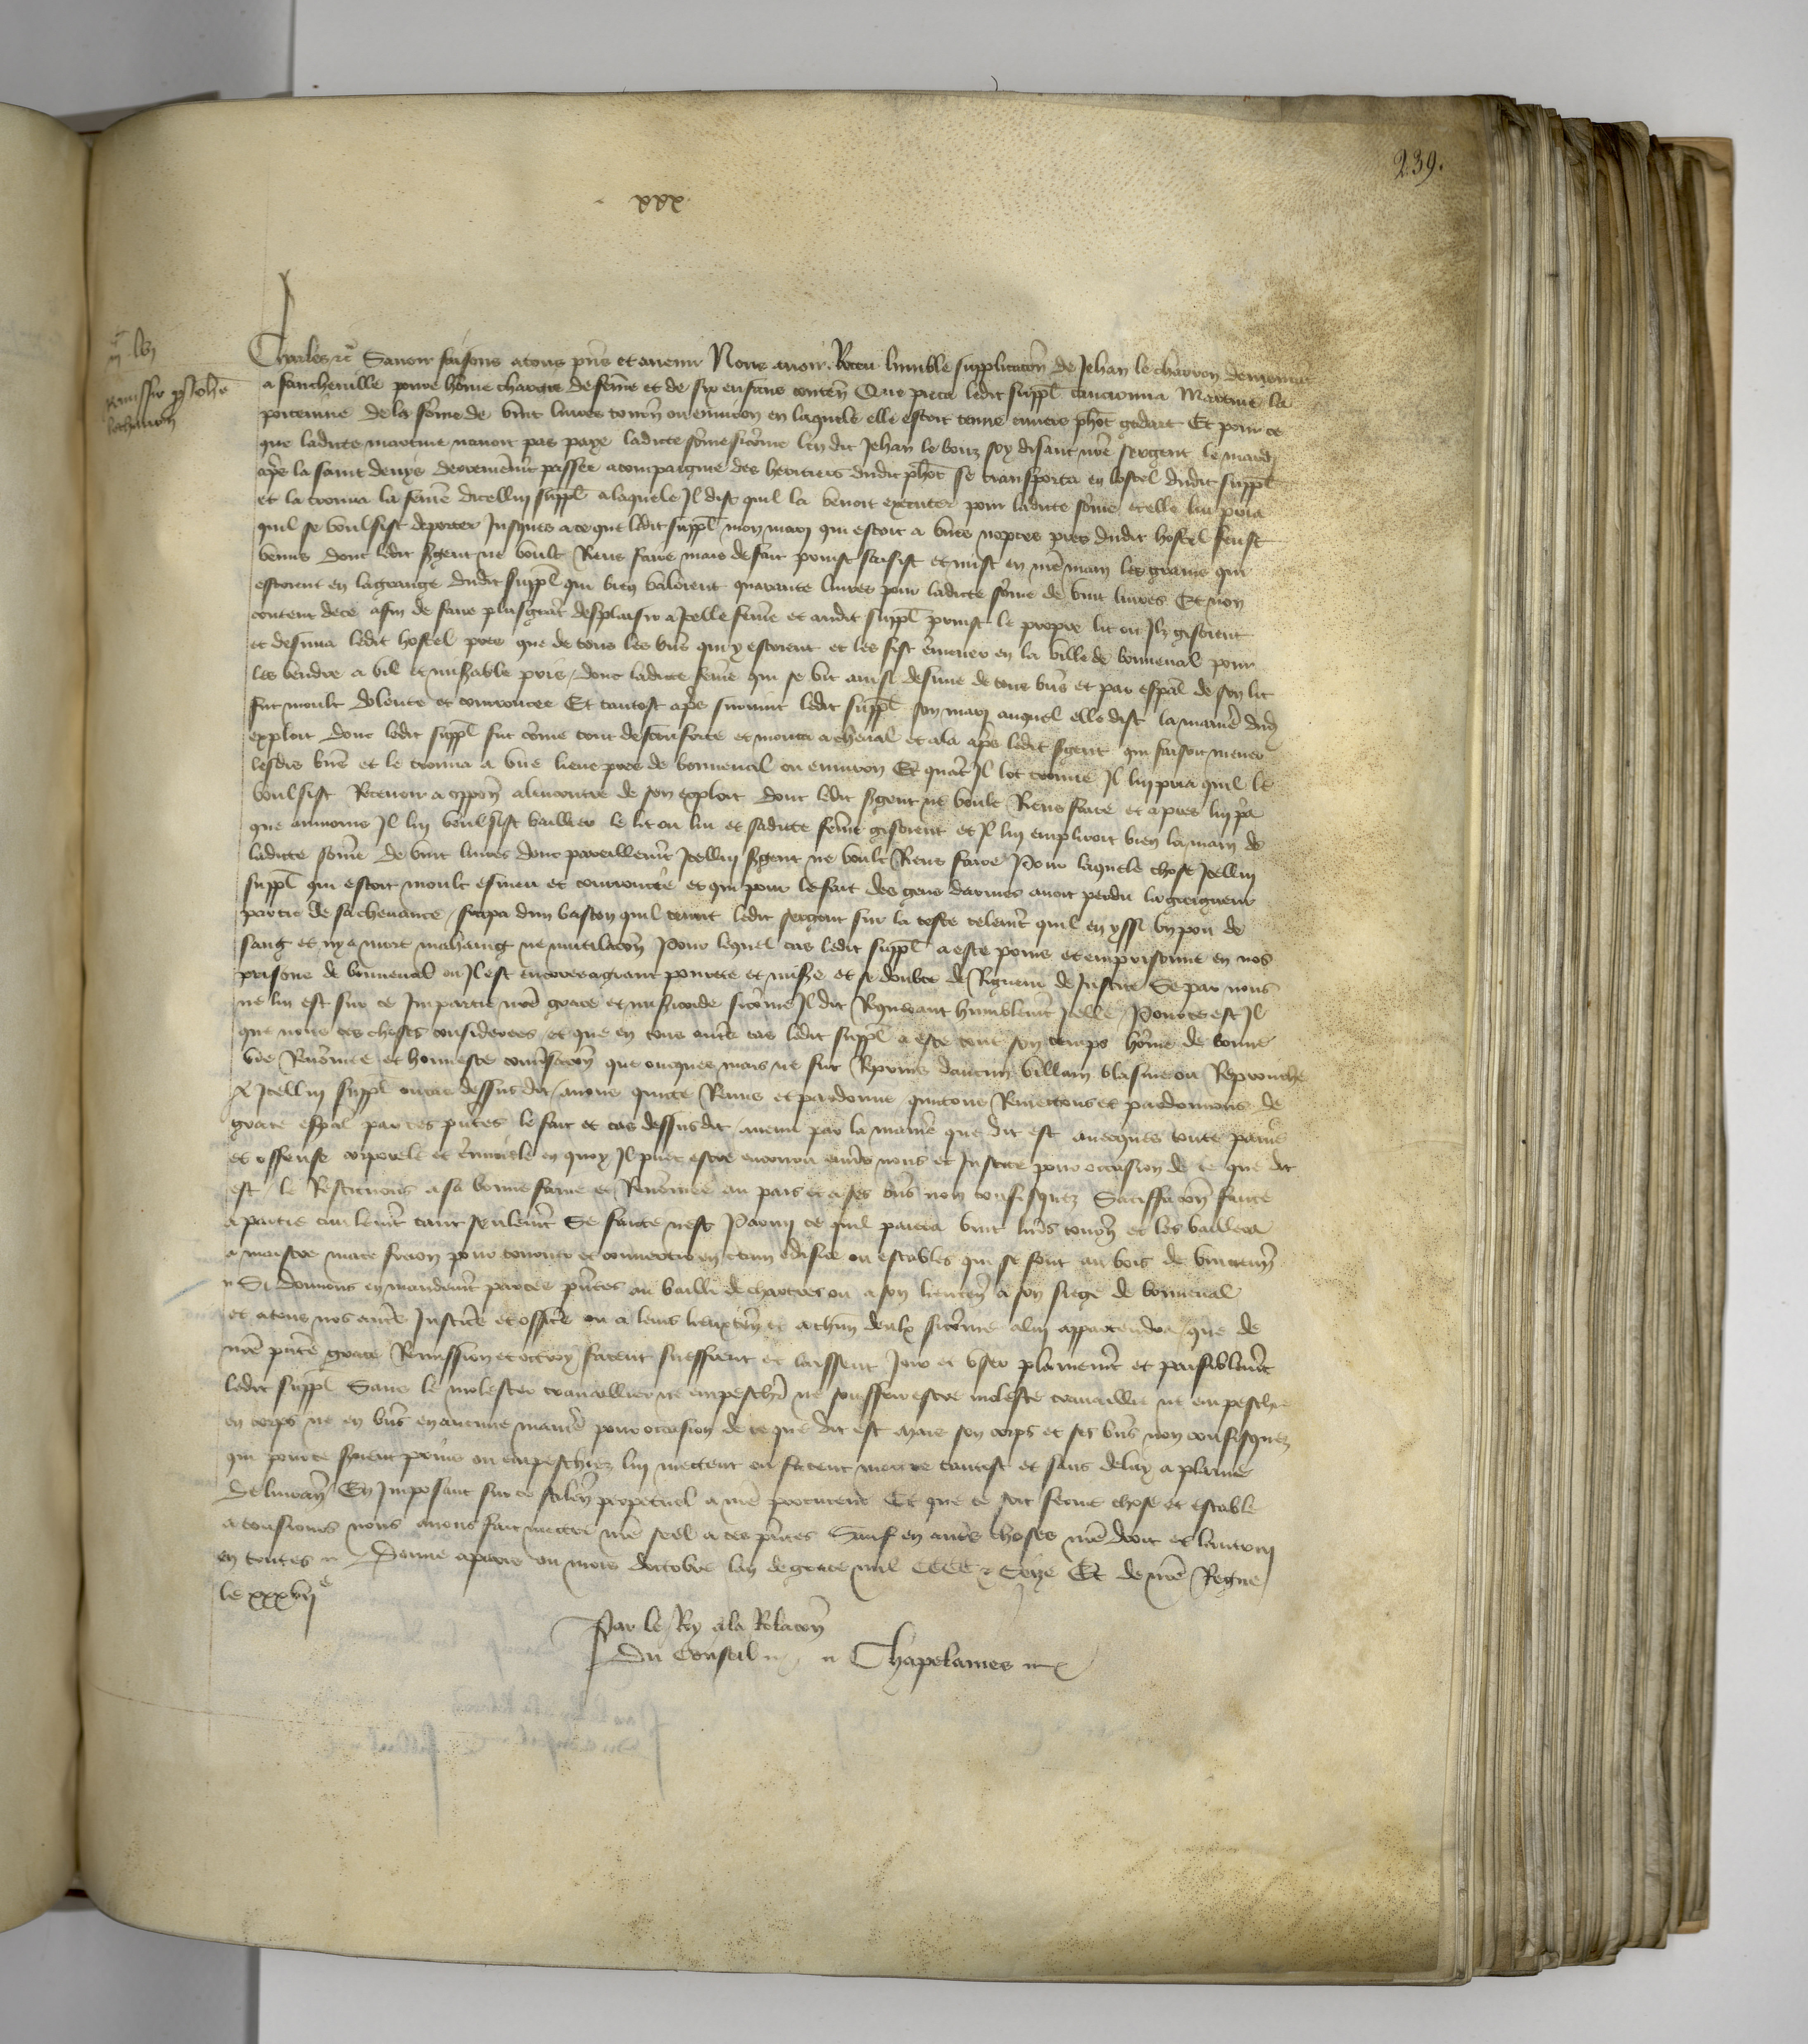 239.
xxx
Remissio pro Johanne
Charles etc Savoir faisons a tous pñs et avenir Nous avoir Receu lumble supplicacōn de Jehan le charron demourant
a sancheville povre hōme chargie de feme et de six enfans conten̄ Que pieca ledit suppl̄ cauciona Martine la
potevine de la sōme de vint livres tourñ ou environ en laquele elle estoit tenue envers ph̄ot godart Et pour ce
que ladicte martine navoit pas paye ladicte sōme sicōme len dit Jehan le bouz soy disant nr̄e sergent le mardi
apr̄s la saint denys derrenierem̄t passee acompaigne des heritiers dudit ph̄ot se transporta en lostel dudit suppl̄
et la trouva la feme dicellui suppl̄ a laquele Il dist quil la venoit executer pour ladicte sōme et elle lui pria
quil se voulsist deporter Jusques a ce que ledit suppl̄ mon mary qui estoit a unes nopces pres dudit hostel feust
venus dont ledit sergent ne voult Riens faire mais de fait prinst saisist et mist en nr̄e main les grains qui
estoient en la grange dudit suppl̄ qui bien valoient quarante livres pour ladicte sōme de vint livres Et non
content de ce afin de faire plus grāt desplaisir a Icelle feme et audit suppl̄ prinst le propre lit ou Ilz gisoient
et desnua ledit hostel pres que de tous les biēs qui y estoient et les fist emener en la ville de bonneval pour
les vendre a vil et miserable pris / dont ladicte feme qui se vit ainsi desnuee de tous biēs et par esp̄al de son lit
fut moult dolente et courroucee Et tantost apr̄s survint ledit suppl̄ son mary auquel elle dist la manie͛ dud
exploit dont ledit suppl̄ fut cōme tout desconforte et monta a cheval et ala apr̄s ledit sergent qui faisoit mener
lesdis biēs et le trouva a une lieue pres de bonneval ou environ Et quāt Il lot trouve Il lui pria quil le
voulsist Recevoir a opposn̄ alencontre de son exploit dont ledit sergent ne voult Riens faire et apres lui pa
que aumoins Il lui voulsist baillier le lit ou lui et sadicte feme gisoient et Il lui empliroit bien la main de
ladicte sōme de vint livres dont pareillem̄t Icellui sergent ne voult Riens faire Pour laquele chose Icellui
suppl̄ qui estoit moult esmeu et courroucie et qui pour le fait des gens darmes avoit perdu la greigneur
partie de sa chevance / frapa dun baston quil tenoit ledit sergent sur la teste telem̄t quil en yssi un pou de
sang et ny a mort mahaing ne mutilacōn Pour lequel cas ledit suppl̄ a este prins et emprisonne en nos
prisons de bonneval ou Il est encores a grant povrete et misere et se doubte de Rigueur de Justice Se par nous
ne lui est sur ce Impartie nr̄e grace et misericorde sicōme Il dit Requerant humblem̄t Icelle / Pource est Il
que nous ces choses considerees et que en tous autres cas ledit suppl̄ a este tout son temps hōme de bonne
vie Renōmee et honneste conversacōn que onques mais ne fut Reprins daucun villain blasme ou Reprouche
A Icellui suppl̄ ou cas dessusdit / avons quicte Remis et pardonne quictons Remettons et pardonnons de
grace esp̄al par ces pn̄tes le fait et cas dessusdit avenu par la manie͛ que dit est avecques toute paine
et offense corporele et criminele en quoy Il puet estre encouru envers nous et Justice pour occasion de ce que dit
est / le Restituons a sa bonne fame et Renōmee au pais et a ses biēs non confisquez Satisfacōn faicte
a partie civilem̄t tant seulem̄t Se faicte nest Parmi ce quil paiera vint livres tourñ et les baillera
a maistre mace freron pour tourner et convertir en certain edifice ou estables qui se font au bois de vincenñ
Si donnons en mandem̄t par ces pn̄tes au bailli de chartres ou a son lieuten̄ a son siege de bonneval
et a tous nos autres Justiciers et officiers ou a leurs lieuxten̄ et a chūn deulx sicōme a lui appartendra / que de
nr̄e pn̄te grace Remission et ottroy facent sueffrent et laissent Joir et user plainem̄t et paisiblem̄t
ledit suppl̄ Sans le molester travaillier ne empeschier ne souffrir estre moleste travaillie ne empeschie
en corps ne en biēs en aucune manie͛ pour occasion de ce que dit est Mais son corps et ses biēs non confisquez
qui pource seroient prins ou empeschiez lui mettent ou facent mettre tantost et sans delay a plaine
delivrāce En Imposant sur ce silence perpetuel a nr̄e procureur Et que ce soit ferme chose et estable
a tousjours nous avons fait mettre nr̄e seel a ces pn̄tes Sauf en autres choses nr̄e droit et lautruy
en toutes Donne a paris ou mois doctobre lan de grace mil CCCC & Seize Et de nr̄e Regne
le xxxvij e
Par le Roy a la Relacōn
Du Conseil Chapelaines